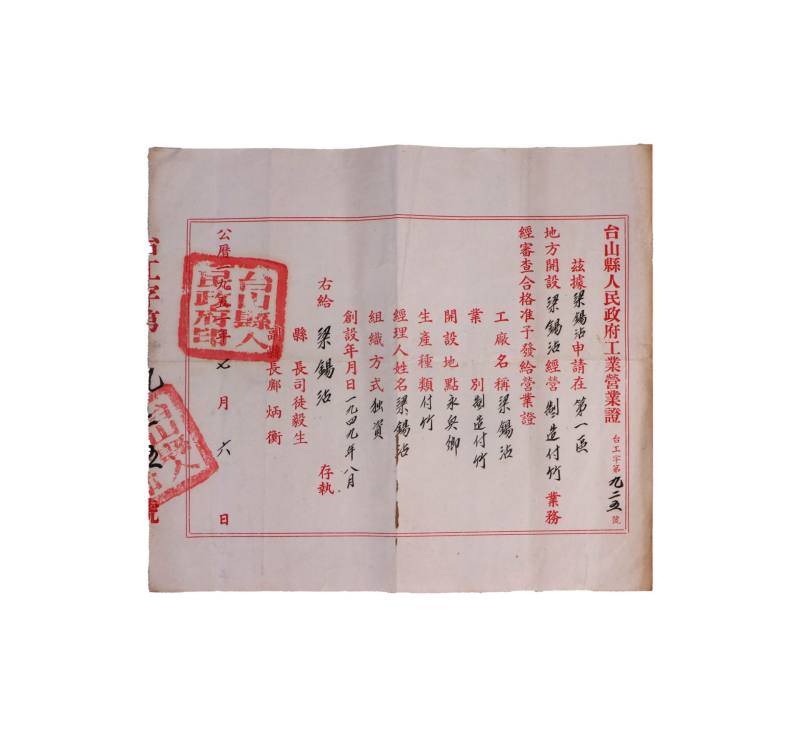 台山縣人民政府工業營業證
台工字第九二五號
茲據梁錫沾申請在第一區
地方開設梁錫沾經營製造付竹業務
經審查合格准予發給營業證
工廠名稱梁錫沾
業別製造付竹
開設地點永吳鄉
生產種類付竹
經理人姓名梁錫沾
組織方式独資
創設年月日一九四九年八月
右給梁錫沾存執
縣長司徒毅生
副縣長鄺炳衡
公曆一九五年七月六日
台山縣人民政府印
台工字第九二五號
台山縣人